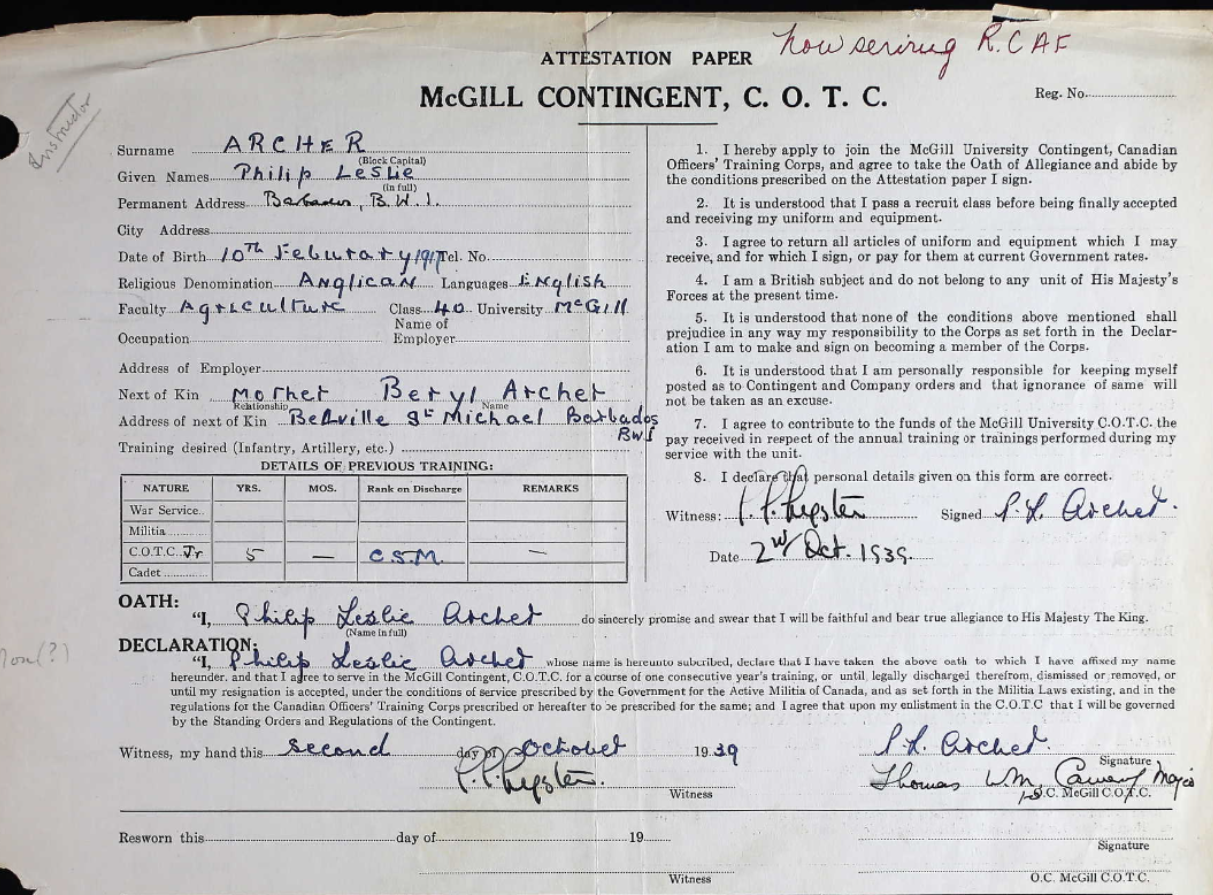 now serving R.C.A.F
ATTESTATION PAPER
McGILL CONTINGENT, C. O. T. C.
Reg. No.
Instructor
Surname ARCHER
(Block Capital)
Given Names Philip Leslie
(in full)
Permanent Address Barbados, B.W.I.
City Address
Date of Birth 10th Feburary 1917 Tel. No.
Religious Denomination Anglican Languages English
Faculty Agriculture Class 40 University McGill
Occupation Name of Employer
Address of Employer
Next of Kin Mother Beryl Archer
Relationship Name
Address of next of Kin Bellville St Michael Barbados
BWI
Training desired (Infantry, Artillery, etc.)
DETAILS OF PREVIOUS TRAINING:
NATURE YRS. MOS. Rank on Discharge REMARKS
War Service
Militia
C.O.T.C. Jr 5 — C.S.M. —
Cadet
1. I hereby apply to join the McGill University Contingent, Canadian
Officers' Training Corps, and agree to take the Oath of Allegiance and abide by
the conditions prescribed on the Attestation paper I sign.
2. It is understood that I pass a recruit class before being finally accepted
and receiving my uniform and equipment.
3. I agree to return all articles of uniform and equipment which I may
receive, and for which I sign, or pay for them at current Government rates.
4. I am a British subject and do not belong to any unit of His Majesty's
Forces at the present time.
5. It is understood that none of the conditions above mentioned shall
prejudice in any way my responsibility to the Corps as set forth in the Declar-
ation I am to make and sign on becoming a member of the Corps.
6. It is understood that I am personally responsible for keeping myself
posted as to Contingent and Company orders and that ignorance of same will
not be taken as an excuse.
7. I agree to contribute to the funds of the McGill University C.O.T.C. the
pay received in respect of the annual training or trainings performed during my
service with the unit.
8. I declare that personal details given on this form are correct.
Witness: Signed P. L. Archer.
Date 2nd Oct. 1939.
OATH:
"I, Philip Leslie Archer do sincerely promise and swear that I will be faithful and bear true allegiance to His Majesty The King.
(Name in full)
DECLARATION:
"I, Philip Leslie Archer whose name is hereunto subcribed, declare that I have taken the above oath to which I have affixed my name
hereunder. and that I agree to serve in the McGill Contingent, C.O.T.C. for a course of one consecutive year's training, or until legally discharged therefrom, dismissed or removed, or
until my resignation is accepted, under the conditions of service prescribed by the Government for the Active Militia of Canada, and as set forth in the Militia Laws existing, and in the
regulations for the Canadian Officers' Training Corps prescribed or hereafter to be prescribed for the same; and I agree that upon my enlistment in the C.O.T.C that I will be governed
by the Standing Orders and Regulations of the Contingent.
Witness, my hand this second day of October 1939 P. L. Archer.
Signature
Thomas Wm. Major
Witness O.C. McGill C.O.T.C.
Resworn this day of 19
Signature
Witness O.C. McGill C.O.T.C.